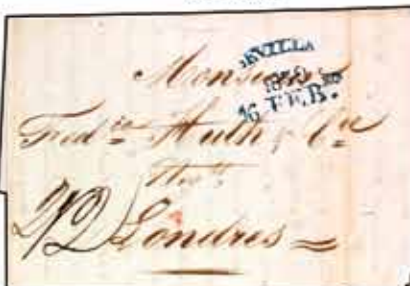 SEVILLA
16 FEB.
Monsieur
Fred.co Huth & Co
2/2 Londres =